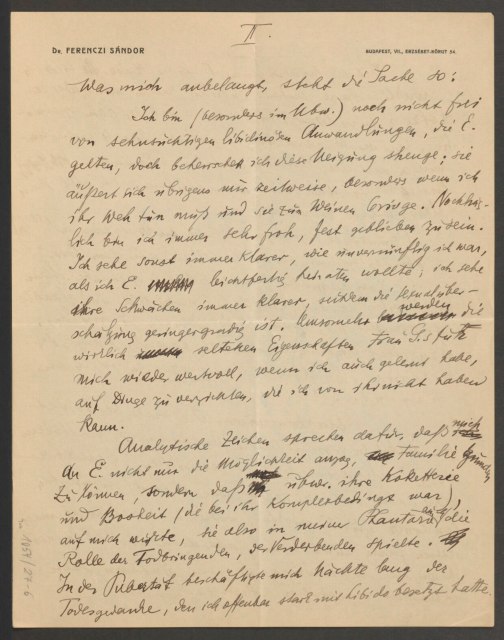 II.
Dr. FERENCZI SÁNDOR
BUDAPEST, VII., ERZSÉBET-KÖRUT 54.
Was mich anbelangt, steht die Sache so:
Ich bin (besonders im Ubw.) noch nicht frei
von sehnsüchtigen libidinösen Anwandlungen, die E.
gelten, doch beherrsche ich diese Neigung strenge; sie
äußert sich übrigens nur zeitweise, besonders wenn ich
ihr Weh tun muß und sie zum Weinen bringe. Nachträg-
lich bin ich immer sehr froh, fest geblieben zu sein.
Ich sehe sonst immer klarer, wie unvernünftig ich war,
als ich E. leichtfertig heiraten wollte; ich sehe
ihre Schwächen immer klarer, seitdem die Sexualüber-
schätzung geringergradig ist. Umsomehr werden die
wirklich seltenen Eigenschaften Frau G.s für
mich wieder wertvoll, wenn ich auch gelernt habe,
auf Dinge zu verzichten, die ich von ihr nicht haben
kann.
Analytische Zeichen sprechen dafür, daß mich
An E. nicht nur die Möglichkeit anzog, Familie gründen
zu können, sondern daß ubw. ihre Koketterie
und Bosheit (die bei ihr Komplexbedingt war),
auf mich wirkte, sie also in meiner Phantasie die
Rolle der Todbringenden, der Verderbenden spielte.
In der Pubertät beschäftigte mich Nächte lang der
Todesgedanke, den ich offenbar stark mit libido besetzt hatte.